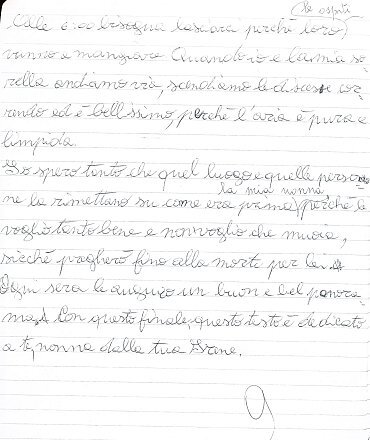 le ospiti
bisogna lasciarli perché loro
vanno a mangiare. Quando io e la mia so
rella andiamo via, scendiamo le discese cor
rendo ed è bellissimo, perché l'aria è pura e
limpida.
Io spero tanto che quel luogo e quelle perso
la mia nonna
ne la rimettano su come era prima, perché le
voglio tanto bene e non voglio che muoia,
sicché pregherò fino alla morte per lei. A
Ogni sera le auguro un buon e bel panora
ma. Con questo finale, questo testo è dedicato
a te, nonna dalla tua Irene.
9